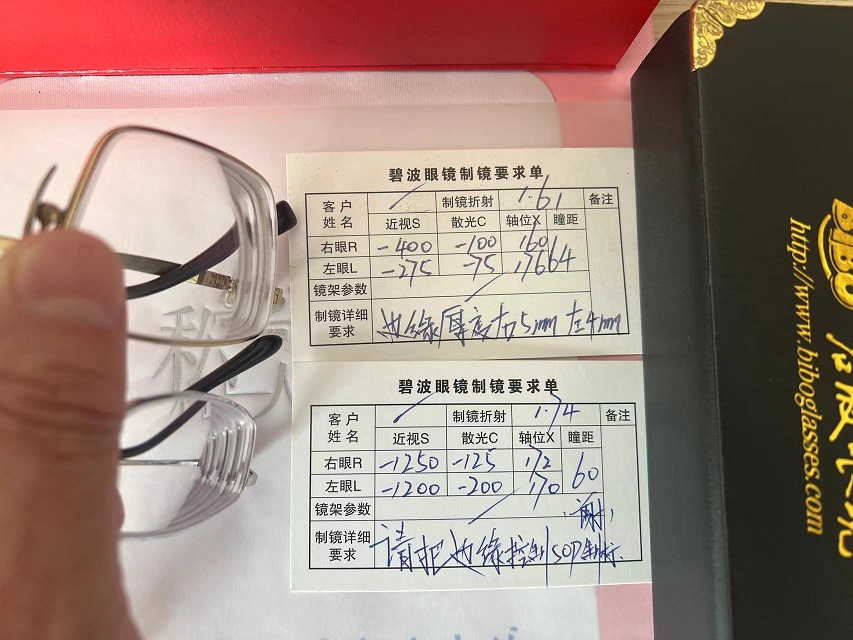 碧波眼镜制镜要求单
客户姓名 制镜折射 1.61 备注
近视S 散光C 轴位X 瞳距
右眼R -400 -100 160 64
左眼L -275 -75 176
镜架参数
制镜详细要求 边缘厚度右5mm 左4mm
碧波眼镜制镜要求单
客户姓名 制镜折射 1.74 备注
近视S 散光C 轴位X 瞳距
右眼R -1250 -125 172 60
左眼L -1200 -200 170
镜架参数
制镜详细要求 请把边缘控制SOP制标.
BIBO
http://www.biboglasses.com